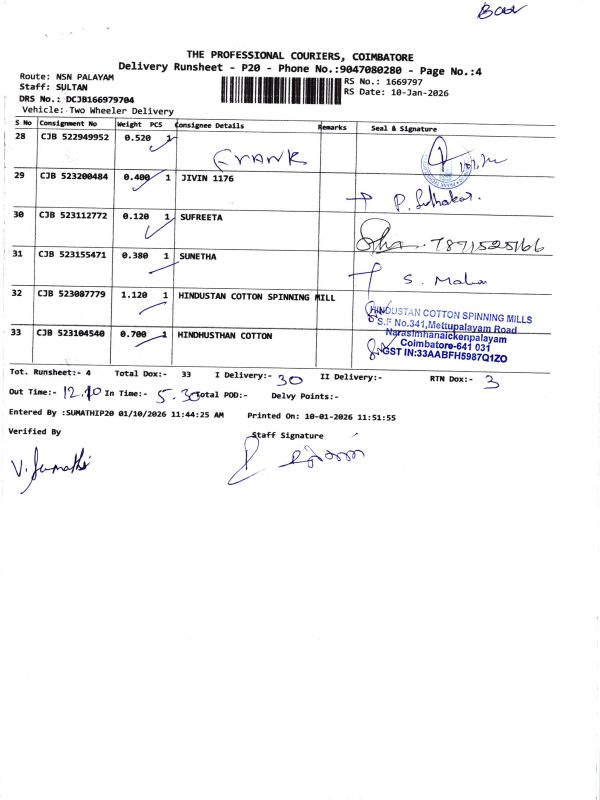 THE PROFESSIONAL COURIERS, COIMBATORE
Delivery Runsheet - P20 - Phone No.:9047080280 - Page No.:4
Route: NSN PALAYAM
RS No.: 1669797
Staff: SULTAN
RS Date: 10-Jan-2026
DRS No.: DCJB166979704
Vehicle: Two Wheeler Delivery
S No Consignment No Weight PCS Consignee Details Remarks Seal & Signature
28 CJB 522949952 0.520 1
FRANK
29 CJB 523200484 0.400 1 JIVIN 1176
P. Suthakar.
30 CJB 523112772 0.120 1 SUFREETA
7871525166
31 CJB 523155471 0.380 1 SUNETHA
S. Maha
32 CJB 523087779 1.120 1 HINDUSTAN COTTON SPINNING MILL
HINDUSTAN COTTON SPINNING MILLS
S.F No.341,Mettupalayam Road
Narasimhanaickenpalayam
33 CJB 523104540 0.700 1 HINDHUSTHAN COTTON
Coimbatore-641 031
GST IN:33AABFH5987Q1ZO
Tot. Runsheet:- 4 Total Dox:- 33 I Delivery:- 30 II Delivery:- RTN Dox:- 3
Out Time:- 12.10 In Time:- 5.30 Total POD:- Delvy Points:-
Entered By :SUMATHIP20 01/10/2026 11:44:25 AM Printed On: 10-01-2026 11:51:55
Verified By Staff Signature
V. Sumathi